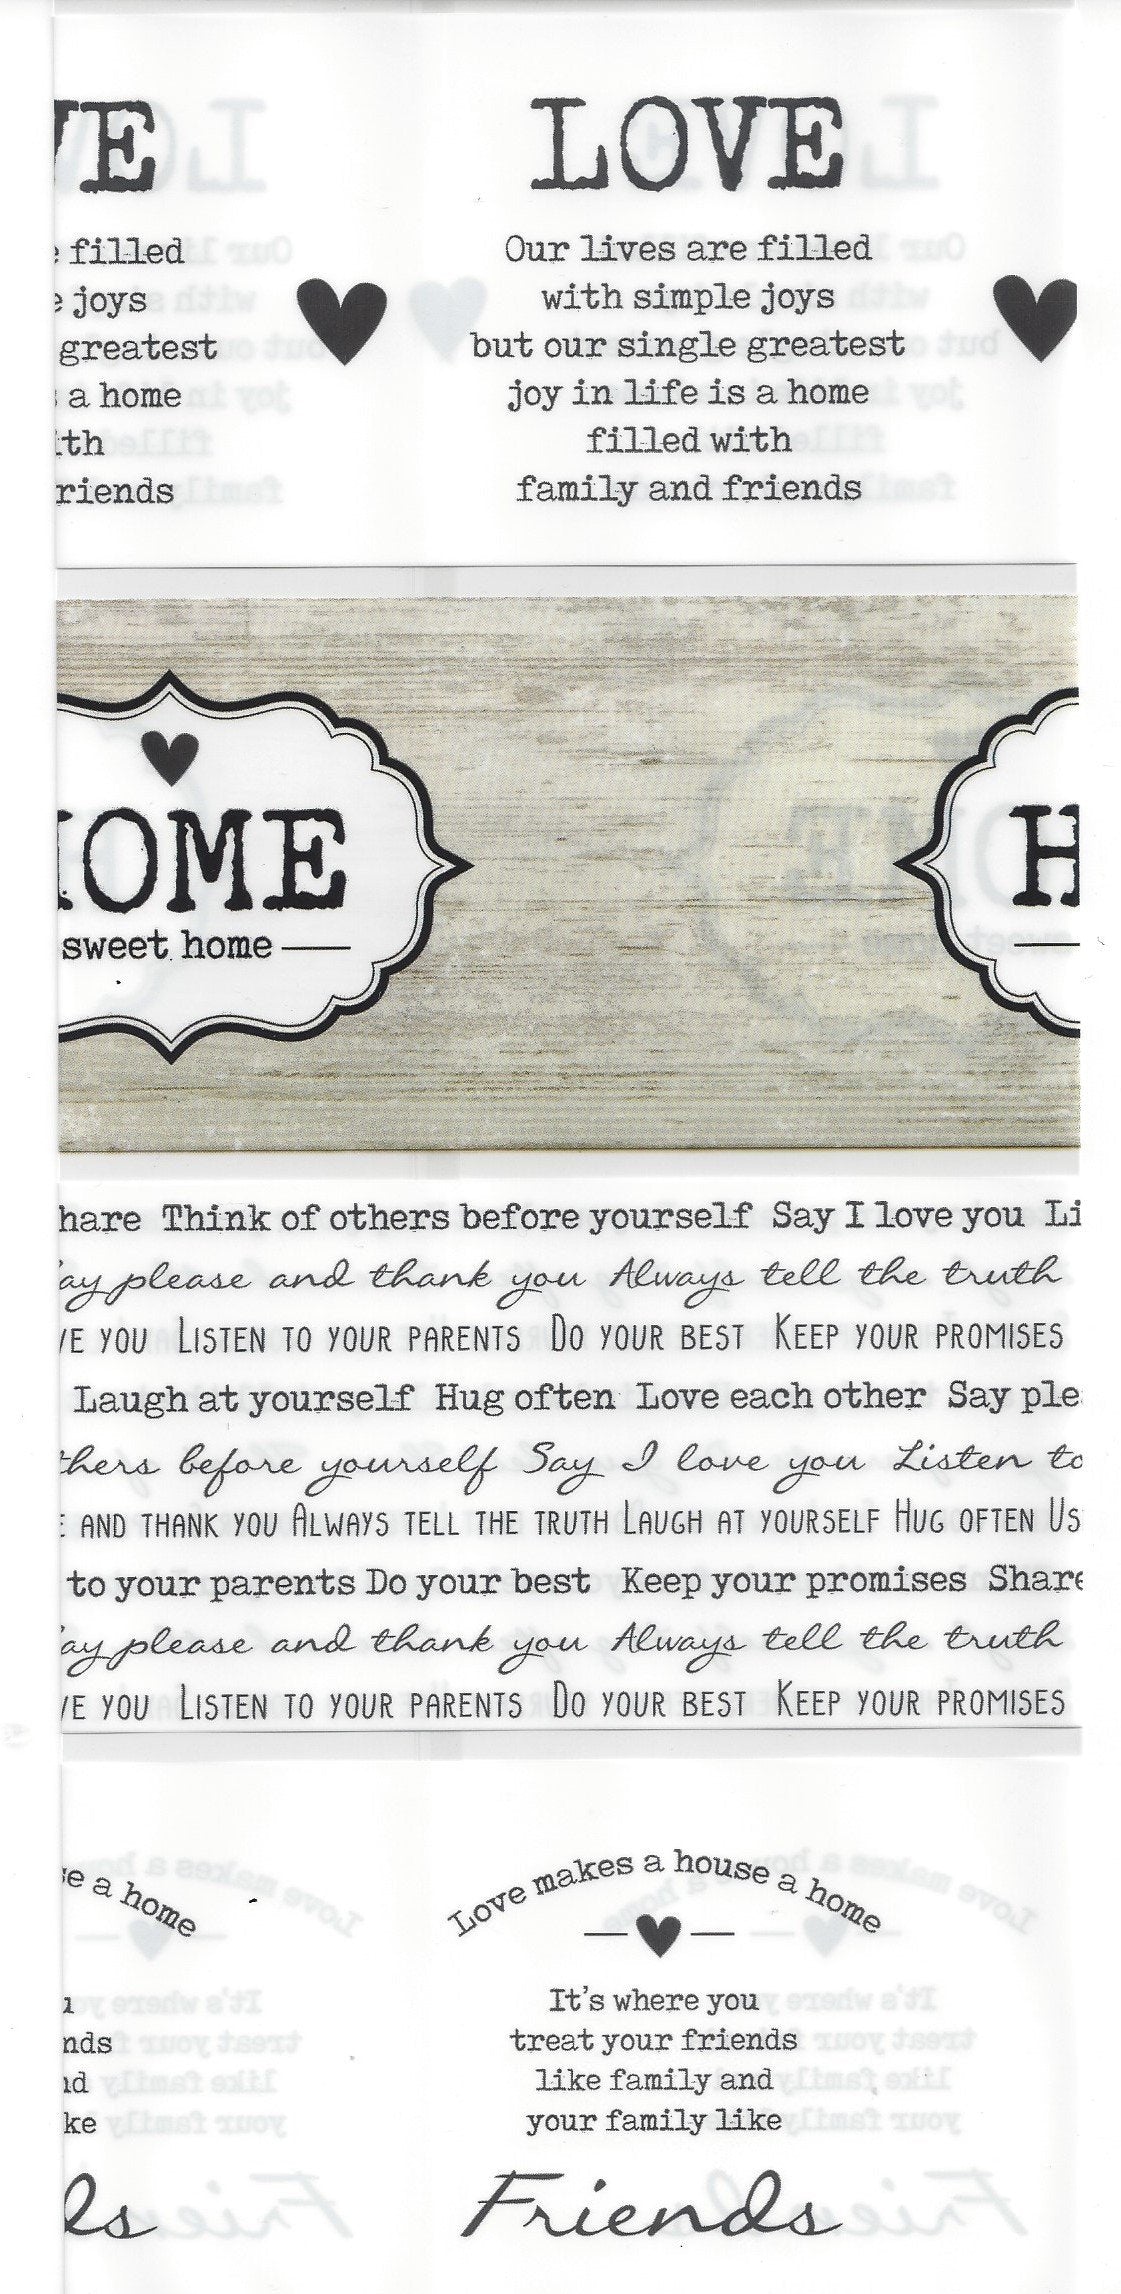 VE LOVE
filled Our lives are filled
joys with simple joys
greatest but our single greatest
a home joy in life is a home
filled with
family and friends
OME
sweet home
H
hare Think of others before yourself Say I love you Li
ay please and thank you Always tell the truth
VE YOU LISTEN TO YOUR PARENTS DO YOUR BEST KEEP YOUR PROMISES
Laugh at yourself Hug often Love each other Say ple
thers before yourself Say I love you Listen to
E AND THANK YOU ALWAYS TELL THE TRUTH LAUGH AT YOURSELF HUG OFTEN US
to your parents Do your best Keep your promises Share
ay please and thank you Always tell the truth
VE YOU LISTEN TO YOUR PARENTS DO YOUR BEST KEEP YOUR PROMISES
e a home Love makes a house a home
It's where you
nds treat your friends
like family and
ke your family like
ds Friends